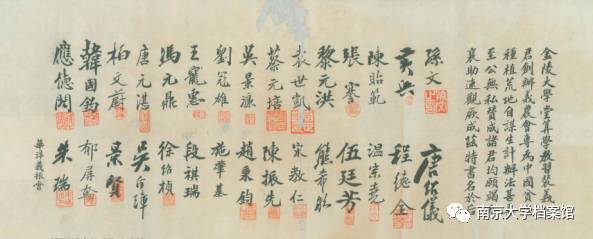 金陵大學堂算學教習裴義
君創辦義農會專為中國貧
種植荒地自謀生計辦法甚
至公無私贊成諸君均願竭
襄助速觀厥成茲特書名於
孫文
黃興
陳貽範
張謇
黎元洪
袁世凱
蔡元培
吳景濂
劉冠雄
王寵惠
馮元鼎
唐元湛
柏文蔚
韓國鈞
應德閎
唐紹儀
程德全
溫宗堯
伍廷芳
熊希齡
宋教仁
陳振先
趙秉鈞
施肇基
段祺瑞
徐紹楨
吳介璋
景賢
郁屏翰
朱瑞
華洋義振會
南京大学档案馆